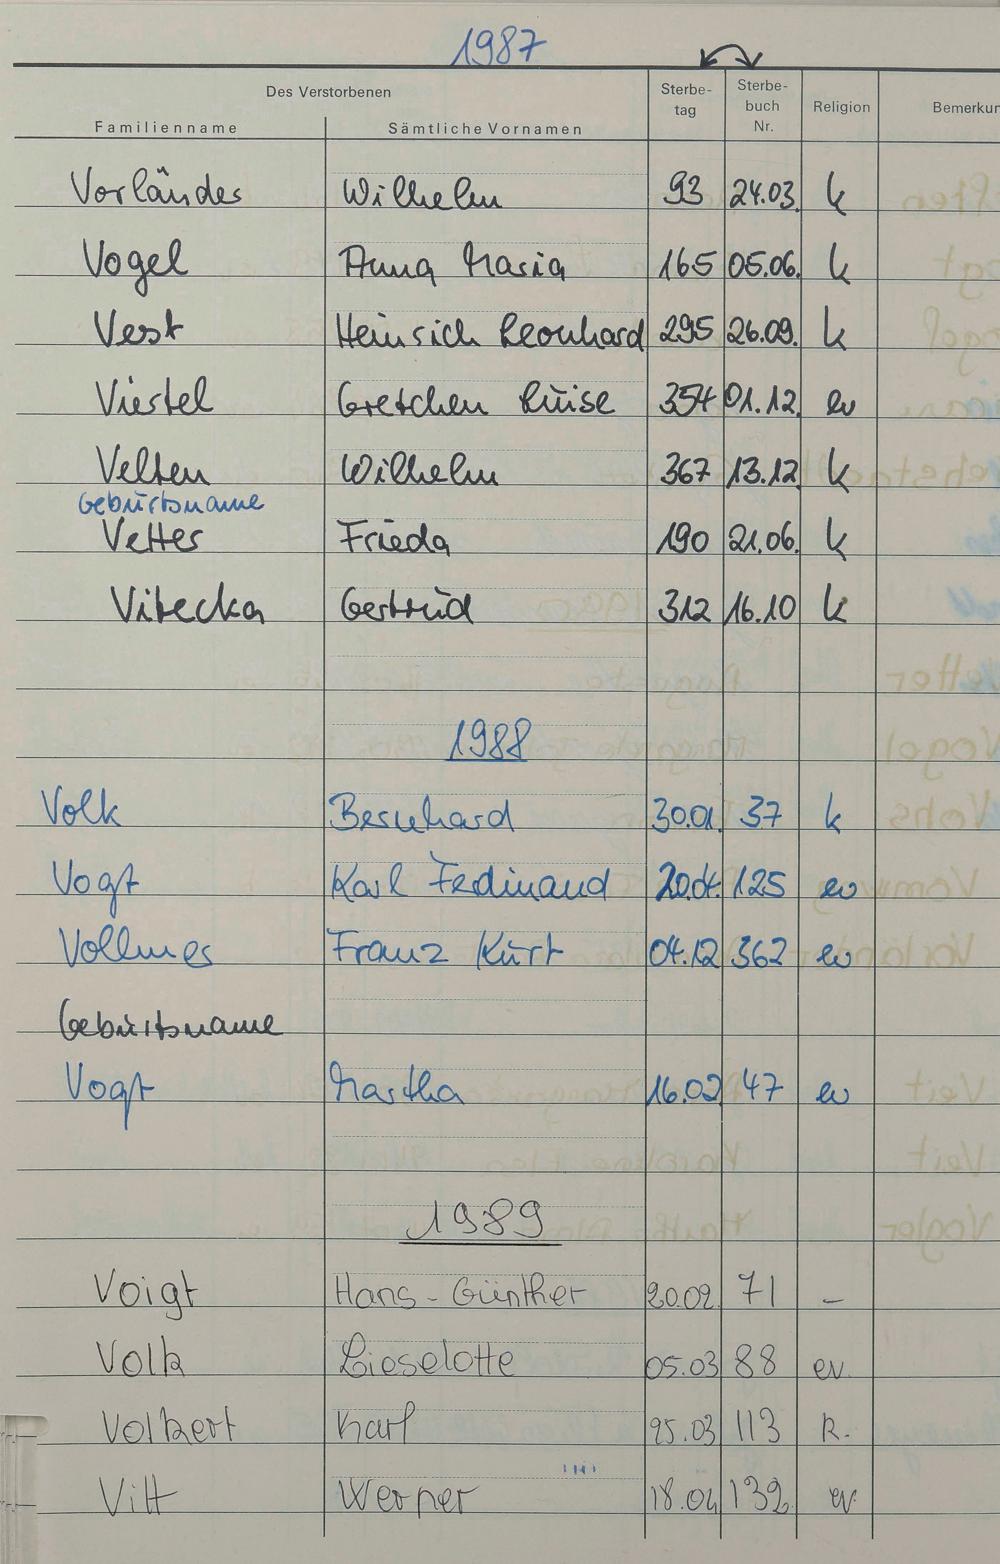 1987
Des Verstorbenen
Familienname Sämtliche Vornamen Sterbe-tag Sterbe-buch Nr. Religion Bemerkun
Vorländer Wilhelm 93 24.03. k
Vogel Anna Maria 165 05.06. k
Vest Heinrich Leonhard 295 26.09. k
Viertel Gretchen Luise 354 01.12. ev
Velten Wilhelm 367 13.12 k
Geburtsname
Vetter Frieda 190 21.06. k
Vitecka Gertrud 312 16.10 k
1988
Volk Bernhard 30.01. 37 k
Vogt Karl Ferdinand 20.04. 125 ev
Vollmer Franz Kurt 04.12 362 ev
Geburtsname
Vogt Martha 16.02 47 ev
1989
Voigt Hans-Günther 20.02. 71 –
Volk Lieselotte 05.03 88 ev.
Volkert Karl 25.03 113 k.
Vitt Werner 18.04 132 ev.